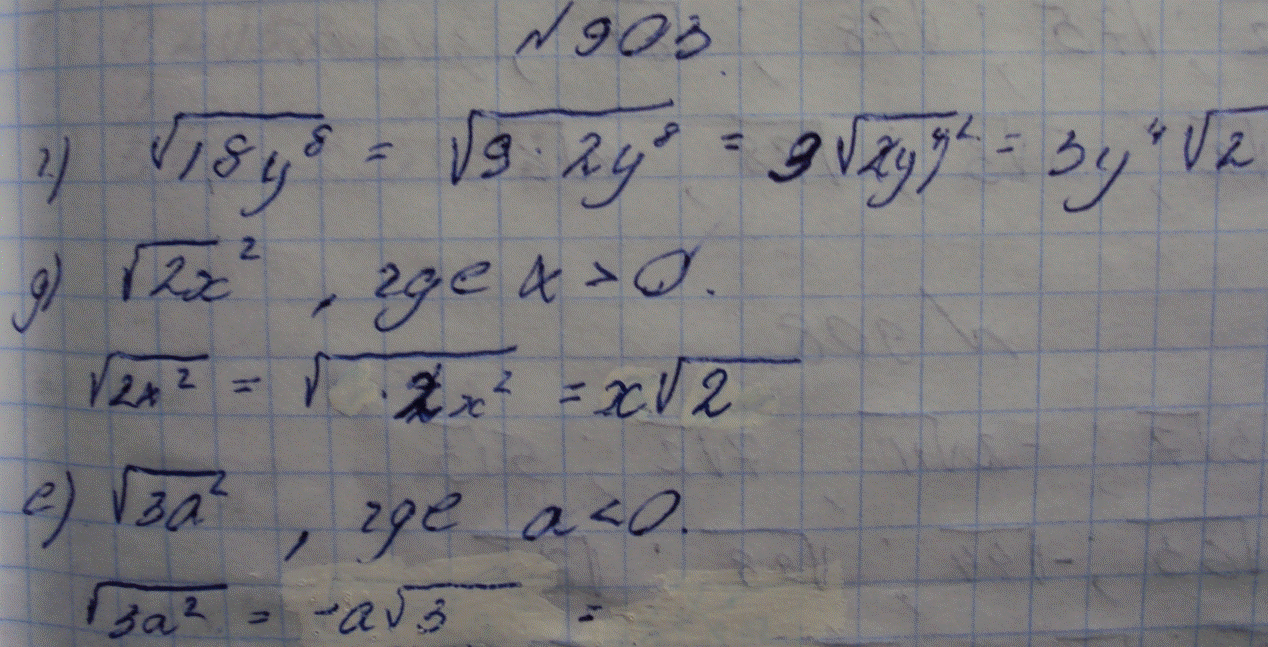 №903.
г) √18y⁸ = √9·2y⁸ = 9√(2y⁴)² = 3y⁴√2
д) √2x², где x > 0.
√2x² = √ ·2x² = x√2
е) √3a², где a < 0.
√3a² = -a√3 =